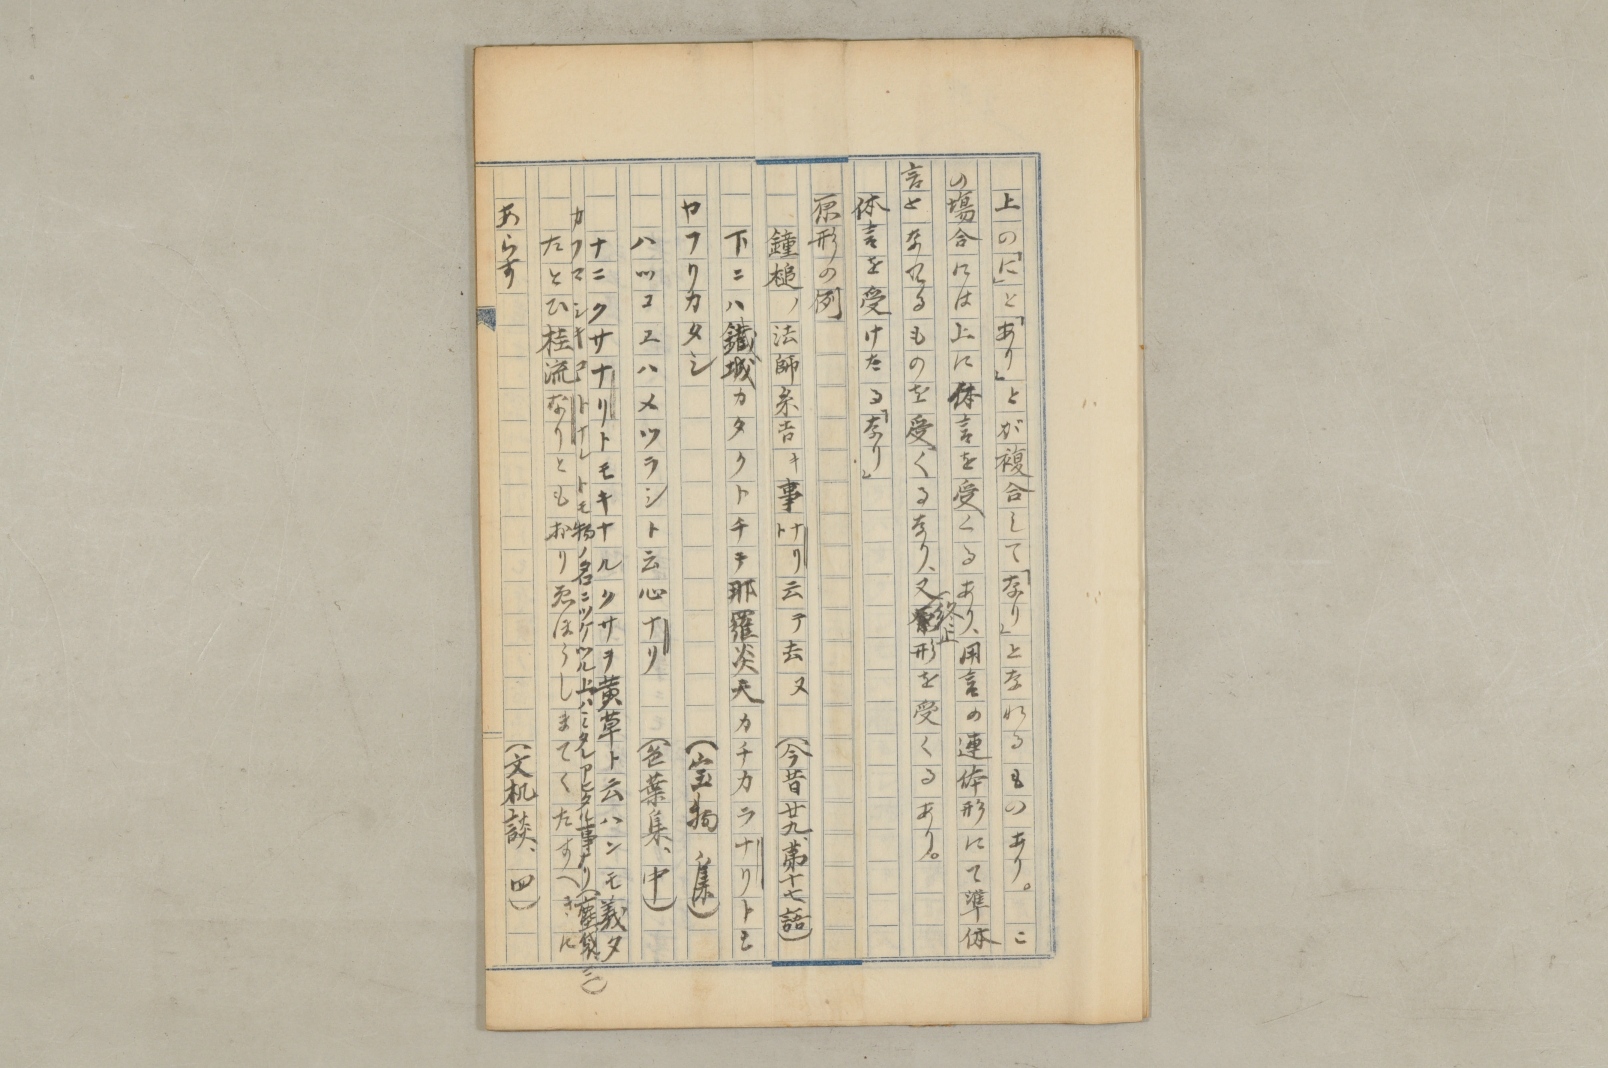 上の「に」と「あり」とが複合して「なり」となれるものあり。こ
の場合には上に体言を受くるあり、用言の連体形にて準体
言となれるものを受くるなり、又終止形を受くるあり。
体言を受けたる「なり」
原形の例
鐘槌ノ法師糸吉キ事ナリト云テ去ヌ（今昔廿九、第十七語）
下ニハ鐵城カタクトチテ那羅炎天カチカラナリトモ
ヤフリカタシ（宝物集）
ハツコエハメツラシト云心ナリ（色葉集、中）
ナニクサナリトモキナルクサヲ黄草ト云ハンモ義タ
カフマシキコトナレトモ物ノ名ニツケツル上ハミタレアヒタル事ナリ（塵袋、三）
たとひ桂流なりともおりゑほうしまてくたすへきに
あらす（文机談、四）